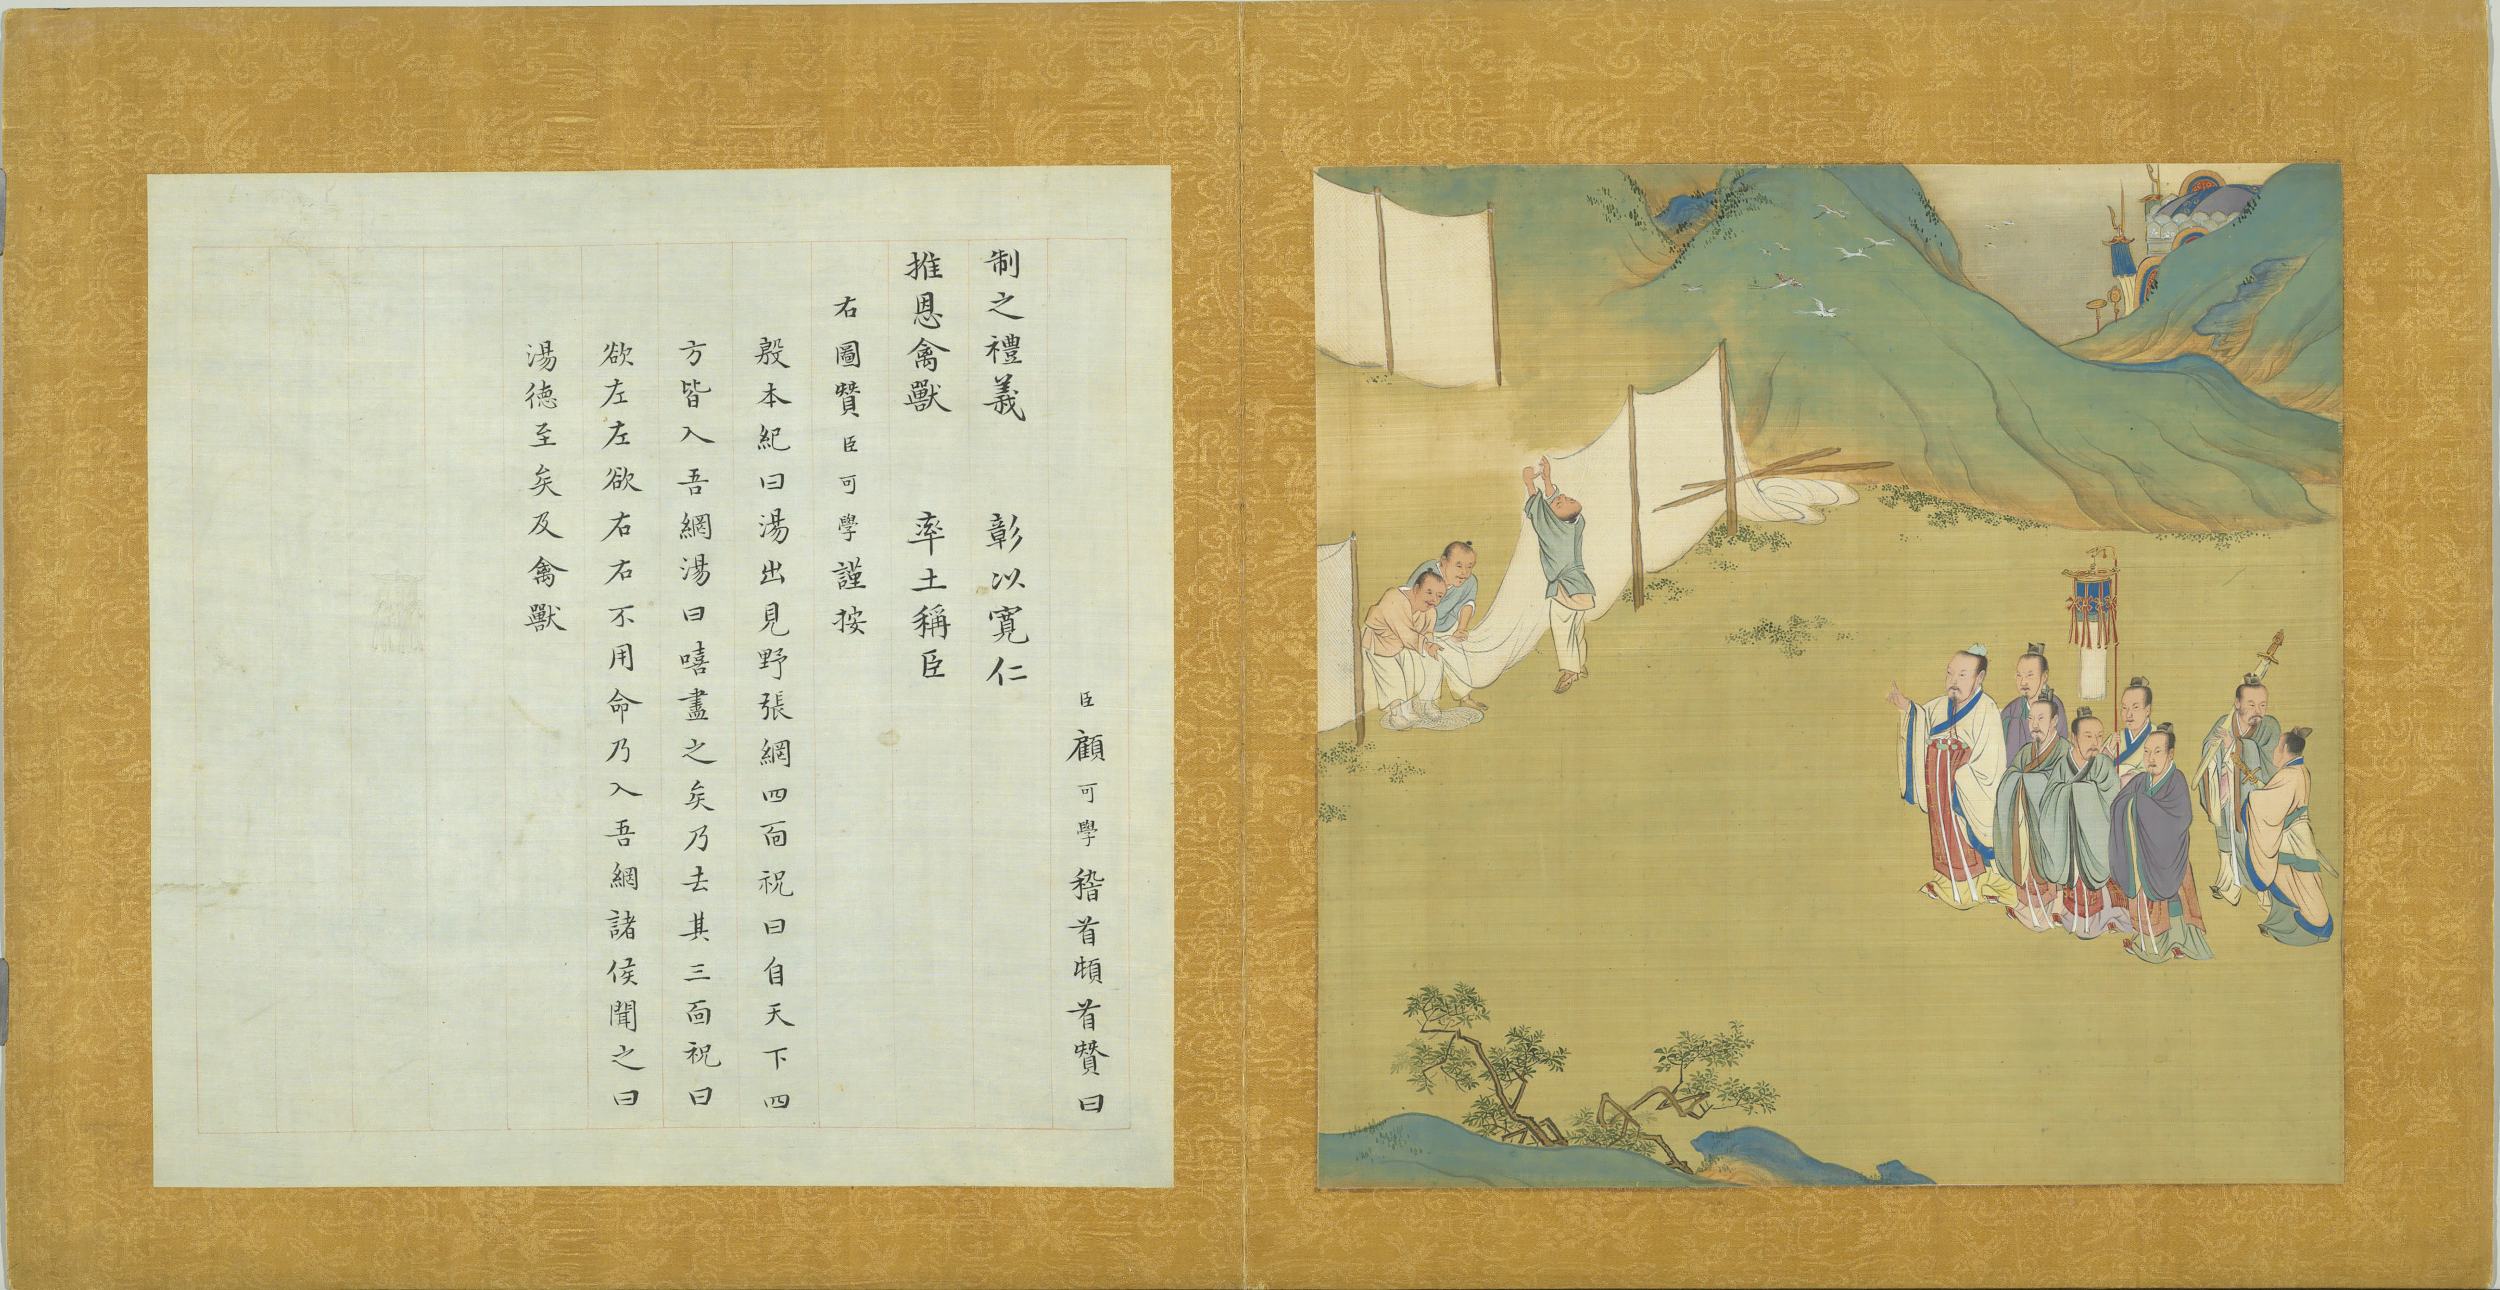 臣顧可學稽首頓首贊曰
制之禮義　彰以寬仁
推恩禽獸　率土稱臣
右圖贊臣可學謹按
殷本紀曰湯出見野張網四面祝曰自天下四
方皆入吾網湯曰嘻盡之矣乃去其三面祝曰
欲左左欲右右不用命乃入吾網諸侯聞之曰
湯德至矣及禽獸